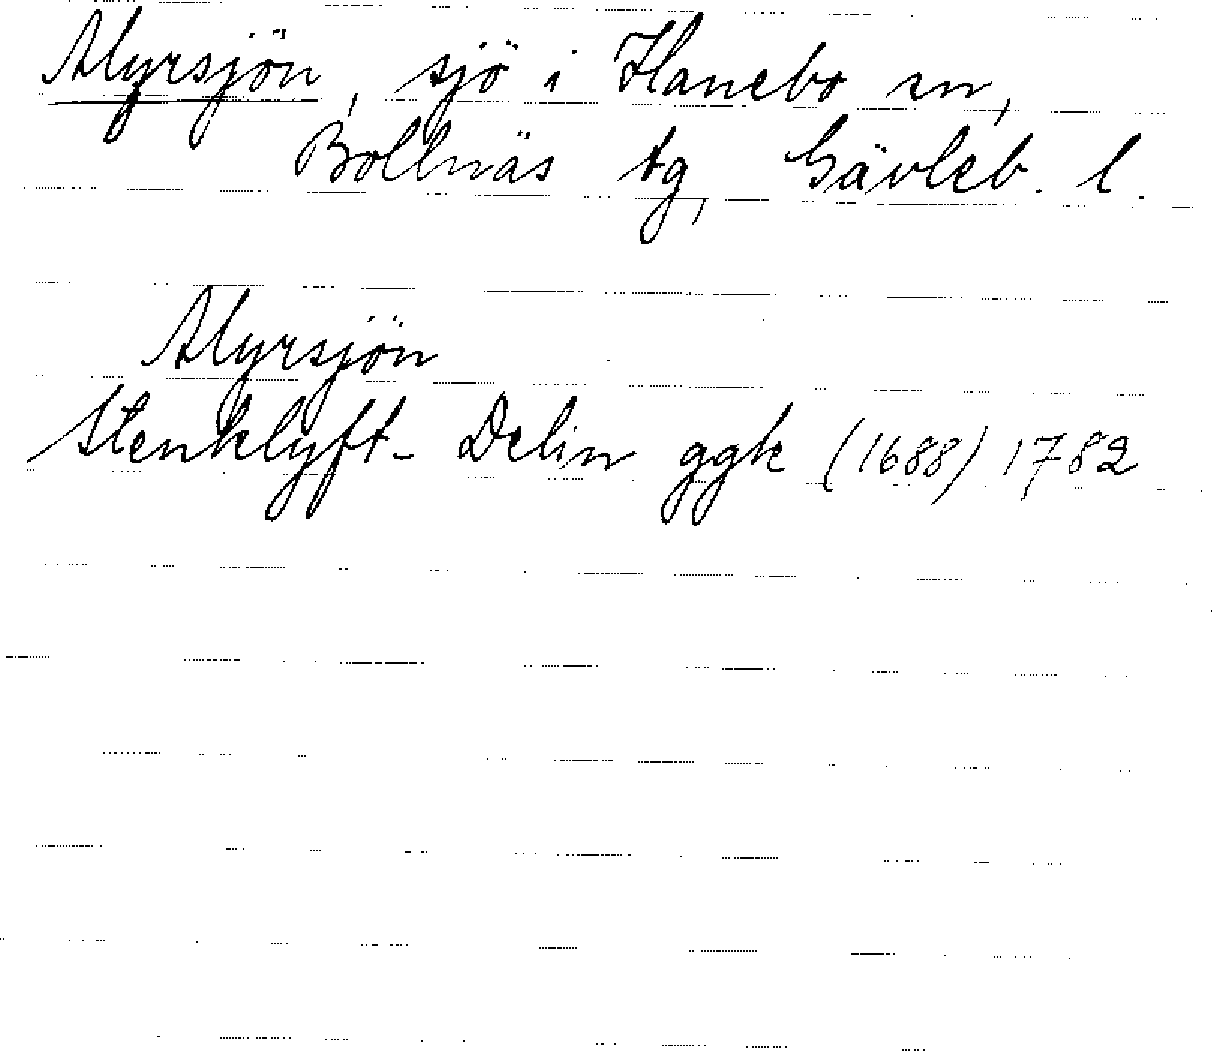 Alyrsjön, sjö i Hanebo sn,
Bollnäs tg, Gävleb. l.
Alyrsjön
Stenklyft- Delin ggk (1688) 1782